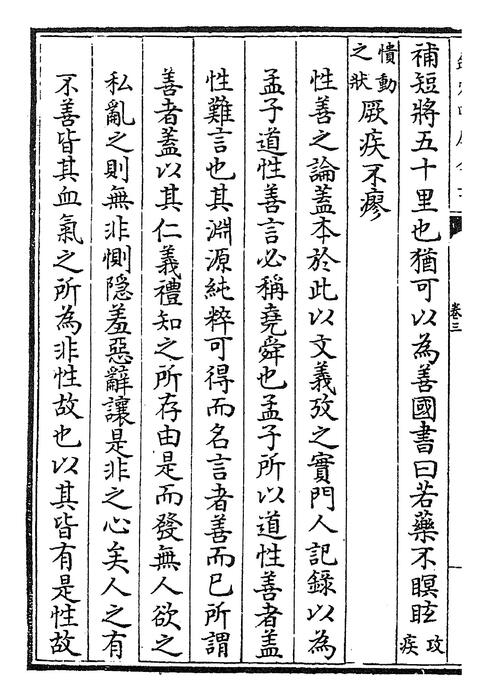 卷三
補短將五十里也猶可以為善國書曰若藥不瞑眩攻疾
憒動之狀厥疾不瘳
性善之論蓋本於此以文義攷之實門人記錄以為
孟子道性善言必稱堯舜也孟子所以道性善者蓋
性難言也其淵源純粹可得而名言者善而已所謂
善者蓋以其仁義禮知之所存由是而發無人欲之
私亂之則無非惻隠羞惡辭讓是非之心矣人之有
不善皆其血氣之所為非性故也以其皆有是性故